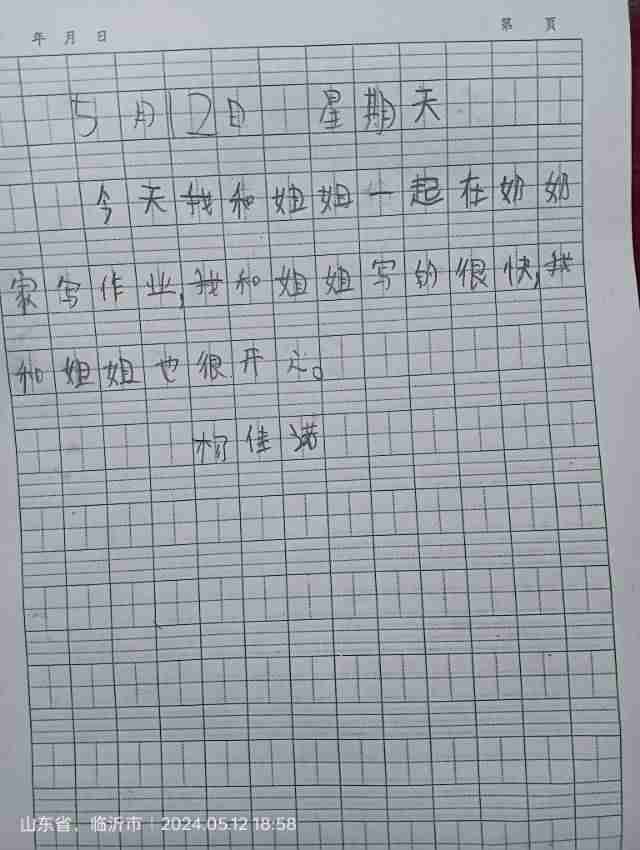 年 月 日 第 页
5月12日 星期天
今天我和姐姐一起在奶奶
家写作业,我和姐姐写的很快,我
和姐姐也很开心。
佳诺
山东省、临沂市 | 2024.05.12 18:58